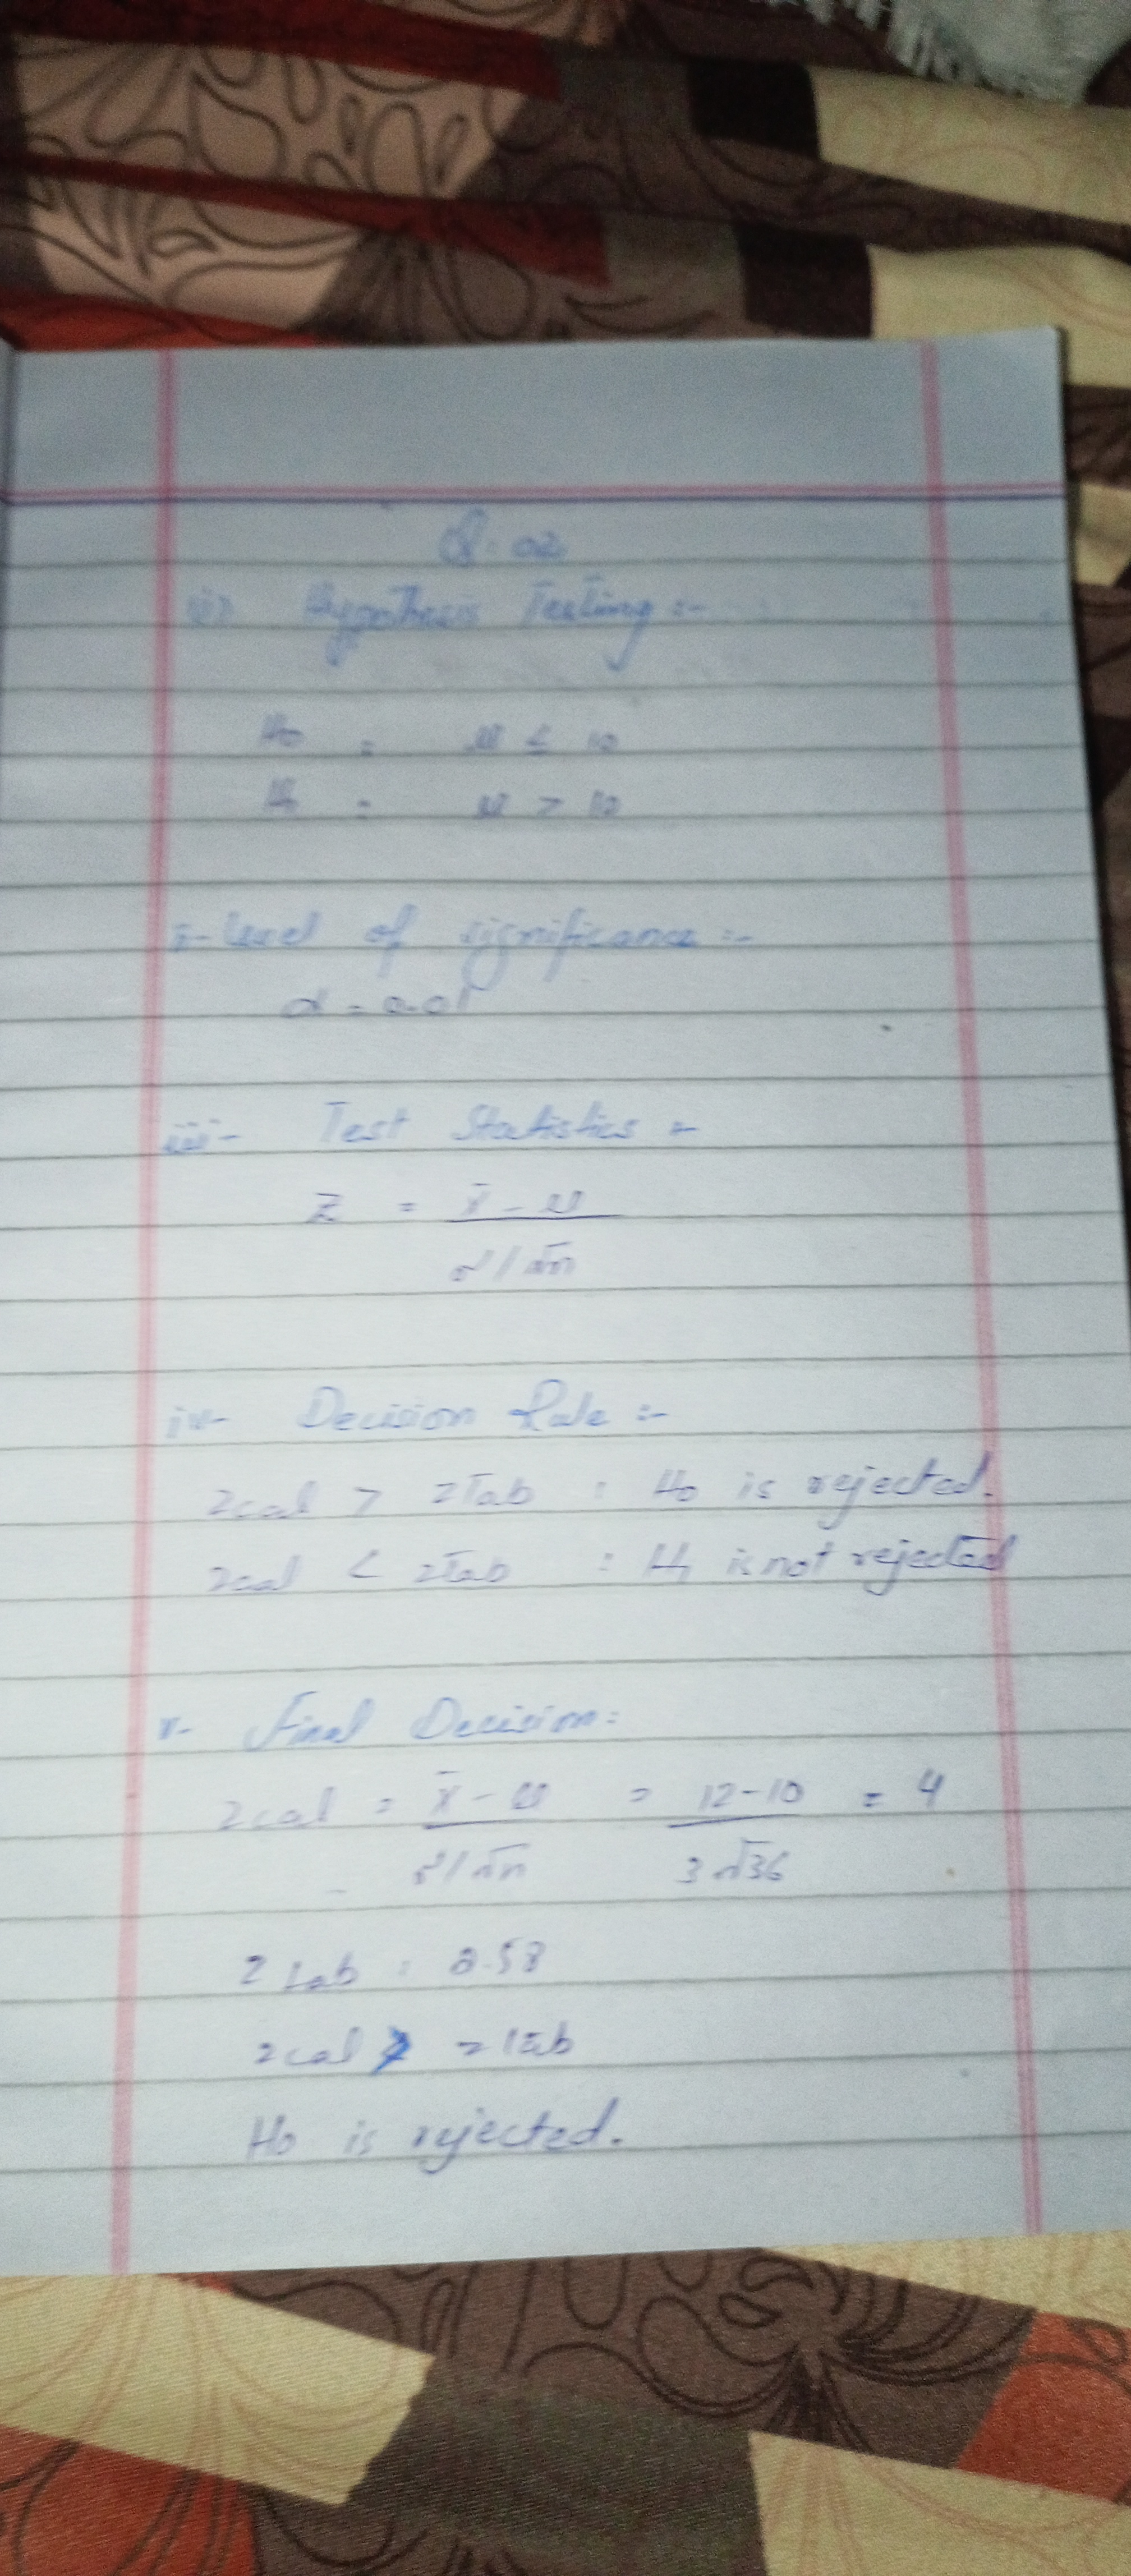 Q. 02
i) Hypothesis Testing :-
H₀ : μ ≤ 10
H₁ : μ > 10
level of significance :-
α = 0.01
iii- Test Statistics :-
Z = x̄ - μ
σ / √n
iv- Decision Rule :-
zcal > zTab : H₀ is rejected.
zcal < zTab : H₁ is not rejected
v- Final Decision :
zcal = x̄ - μ = 12-10 = 4
σ / √n 3 √36
z tab : 2.58
zcal > ztab
H₀ is rejected.